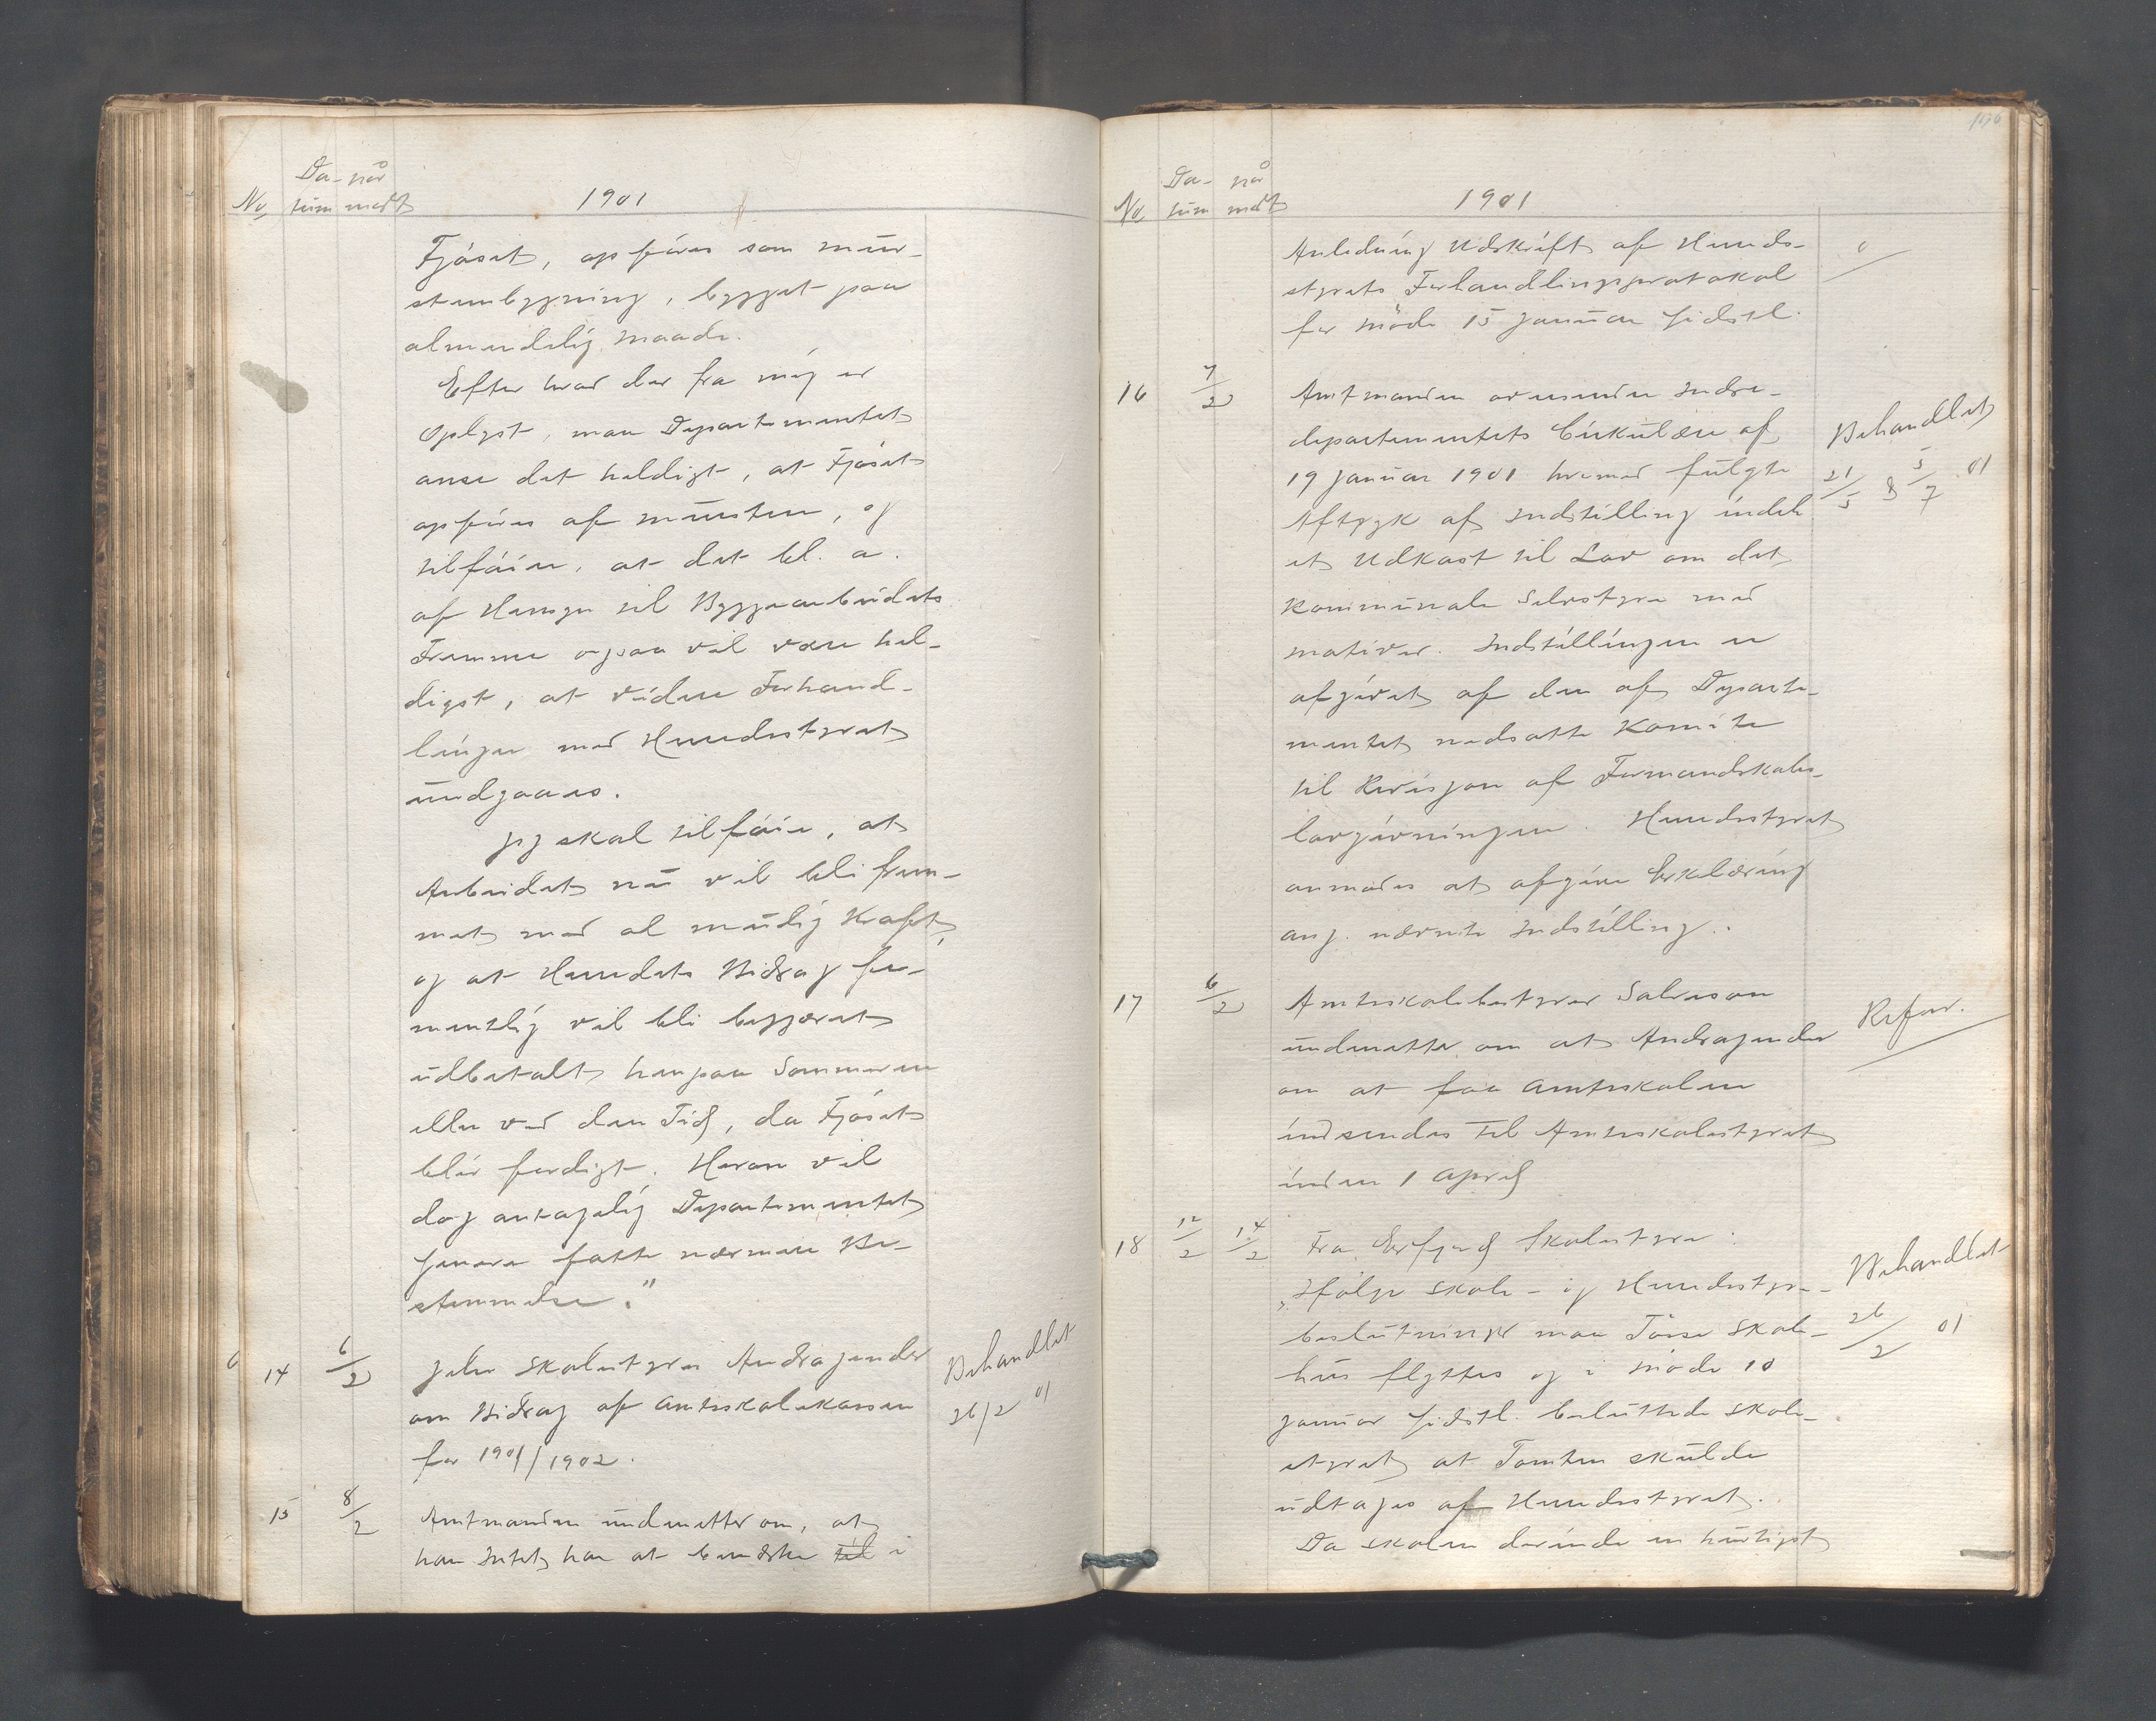 Da- når
No tum modt 1901
Fjøset, opføres som mur-
stenbygning, bygget paa
almindelig Maade.
Efter hvad der fra mig er
Oplyst, maa Departementet
anse det heldigt, at Fjøset
opføres af mursten, og
tilføier, at det bl. a.
af Hensyn til Byggearbeidets
Fremme ogsaa vil være hel-
digst, at videre Forhand-
linger med Herredsstyret
undgaaes.
Jeg skal tilføie, at
Arbeidet nu vil bli frem-
met med al mulig Kraft,
og at Herredets Bidrag for-
mentlig vil bli begjæret
udbetalt henpaa Sommeren
eller ved den Tid, da Fjøset
blir ferdigt. Herom vil
dog antagelig Departementet
senere fatte nærmere Be-
stemmelse."
14 6/2 Jelse Skolestyres Andragender Behandlet
om Bidrag af Amtsskolekassen 26/2 01
for 1901/1902.
15 8/2 Amtmanden underretter om, at
han Intet har at bemerke til i
196
Da- når
No tum modt 1901
Anledning Udskrift af Herreds- 0
styrets Forhandlingsprotokol
for Møde 15 Januar sidstl.
16 7/2 Amtmanden oversender Indre-
departementets Cirkulære af Behandlet
19 Januar 1901 hvormed fulgte 21/5 & 5/7 01
Aftryk af Indstilling indeh
et Udkast til Lov om det
Kommunale Selvstyre med
motiver. Indstillingen er
afgivet af den af Departe-
mentet nedsatte Komite
til Revisjon af Formandskabs-
lovgivningen. Herredsstyret
anmodes at afgive Erklæring
ang. nævnte Indstilling.
17 6/2 Amtsskolebestyrer Salveson Refer.
underretter om at Andragender
om at faa Amtsskolen
indsendes til Amtsskolestyret
inden 1 April
18 12/2 14/2 Fra Erfjord Skolestyre:
„Ifølge Skole- og Herredsstyre- Behandlet
beslutninger maa Tørse Skole- 26/2 01
hus flyttes og i Møde 10
Januar sidstl. besluttede Skole-
styret at Tomten skulde
udtages af Herredsstyret.
Da Skolen derinde en hurtigst